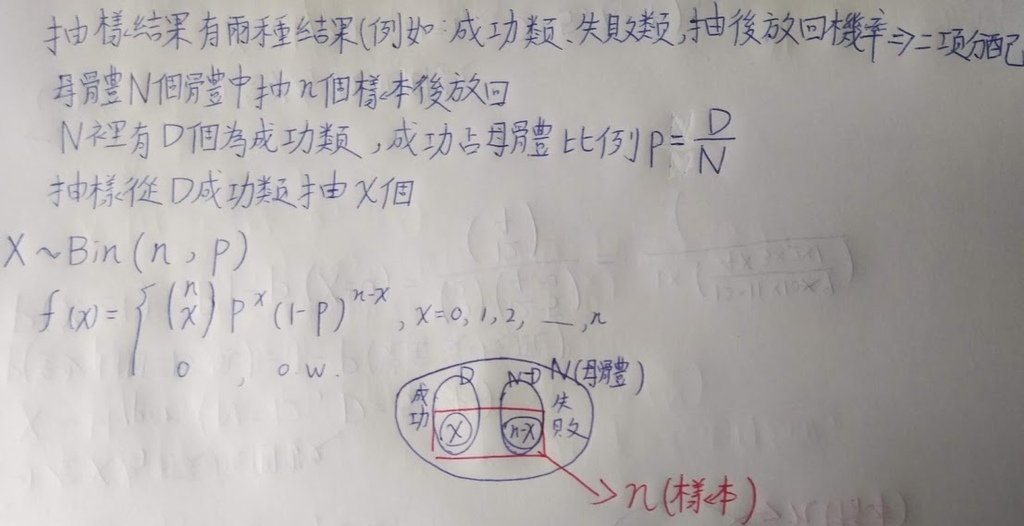 抽樣結果有兩種結果(例如:成功類、失敗類,抽後放回機率⇒二項分配
母體N個體中抽n個樣本後放回
N裡有D個為成功類,成功占母體比例 p = D/N
抽樣從D成功類抽X個
X ~ Bin(n, p)
f(x) = { (n x) p^x (1-p)^{n-x}, x=0, 1, 2, __, n
0, o.w.
D N-D N(母體)
成功 失敗
x n-x
n(樣本)